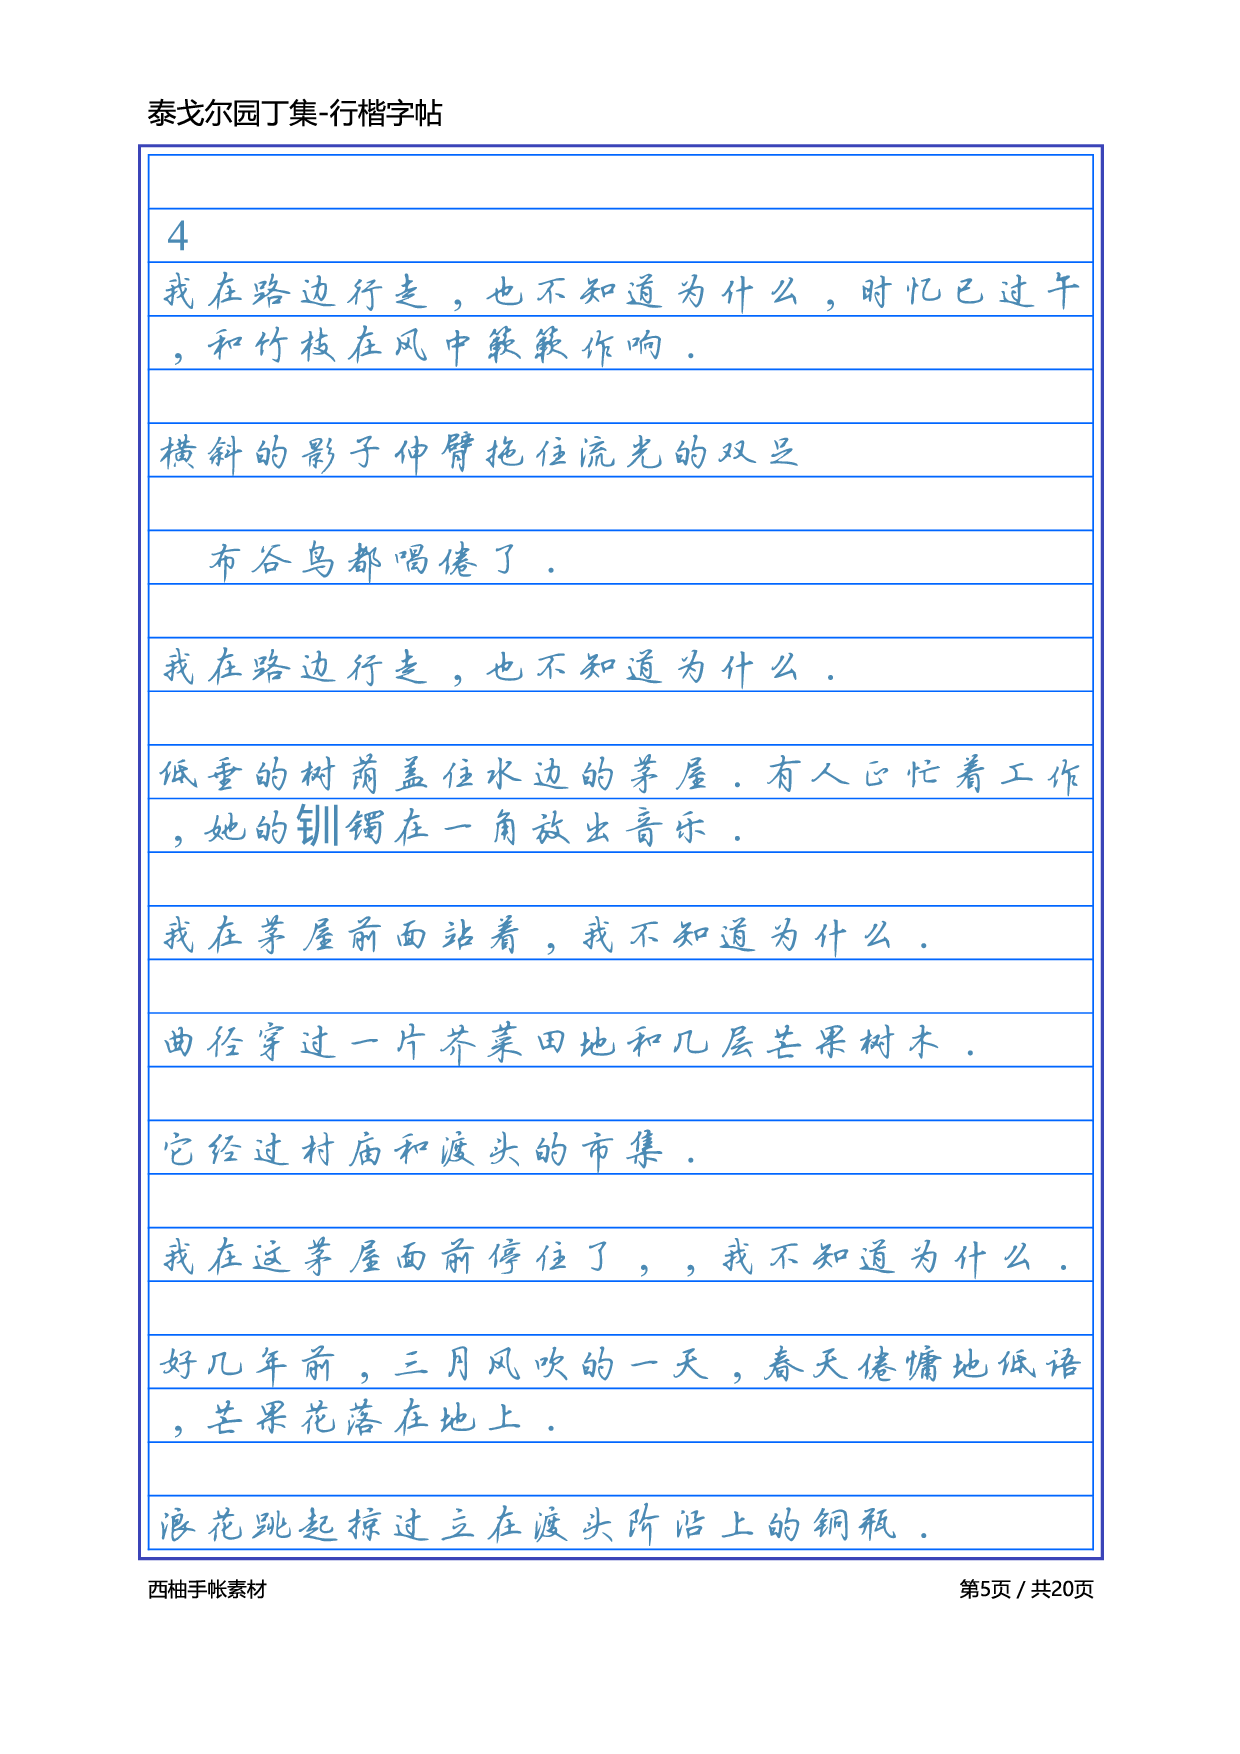 泰戈尔园丁集-行楷字帖
4
我在路边行走，也不知道为什么，时忆已过午
，和竹枝在风中簌簌作响．
横斜的影子伸臂拖住流光的双足
布谷鸟都唱倦了．
我在路边行走，也不知道为什么．
低垂的树荫盖住水边的茅屋．有人正忙着工作
，她的钏镯在一角放出音乐．
我在茅屋前面站着，我不知道为什么．
曲径穿过一片芥菜田地和几层芒果树木．
它经过村庙和渡头的市集．
我在这茅屋面前停住了，，我不知道为什么．
好几年前，三月风吹的一天，春天倦慵地低语
，芒果花落在地上．
浪花跳起掠过立在渡头阶沿上的铜瓶．
西柚手帐素材
第5页 / 共20页